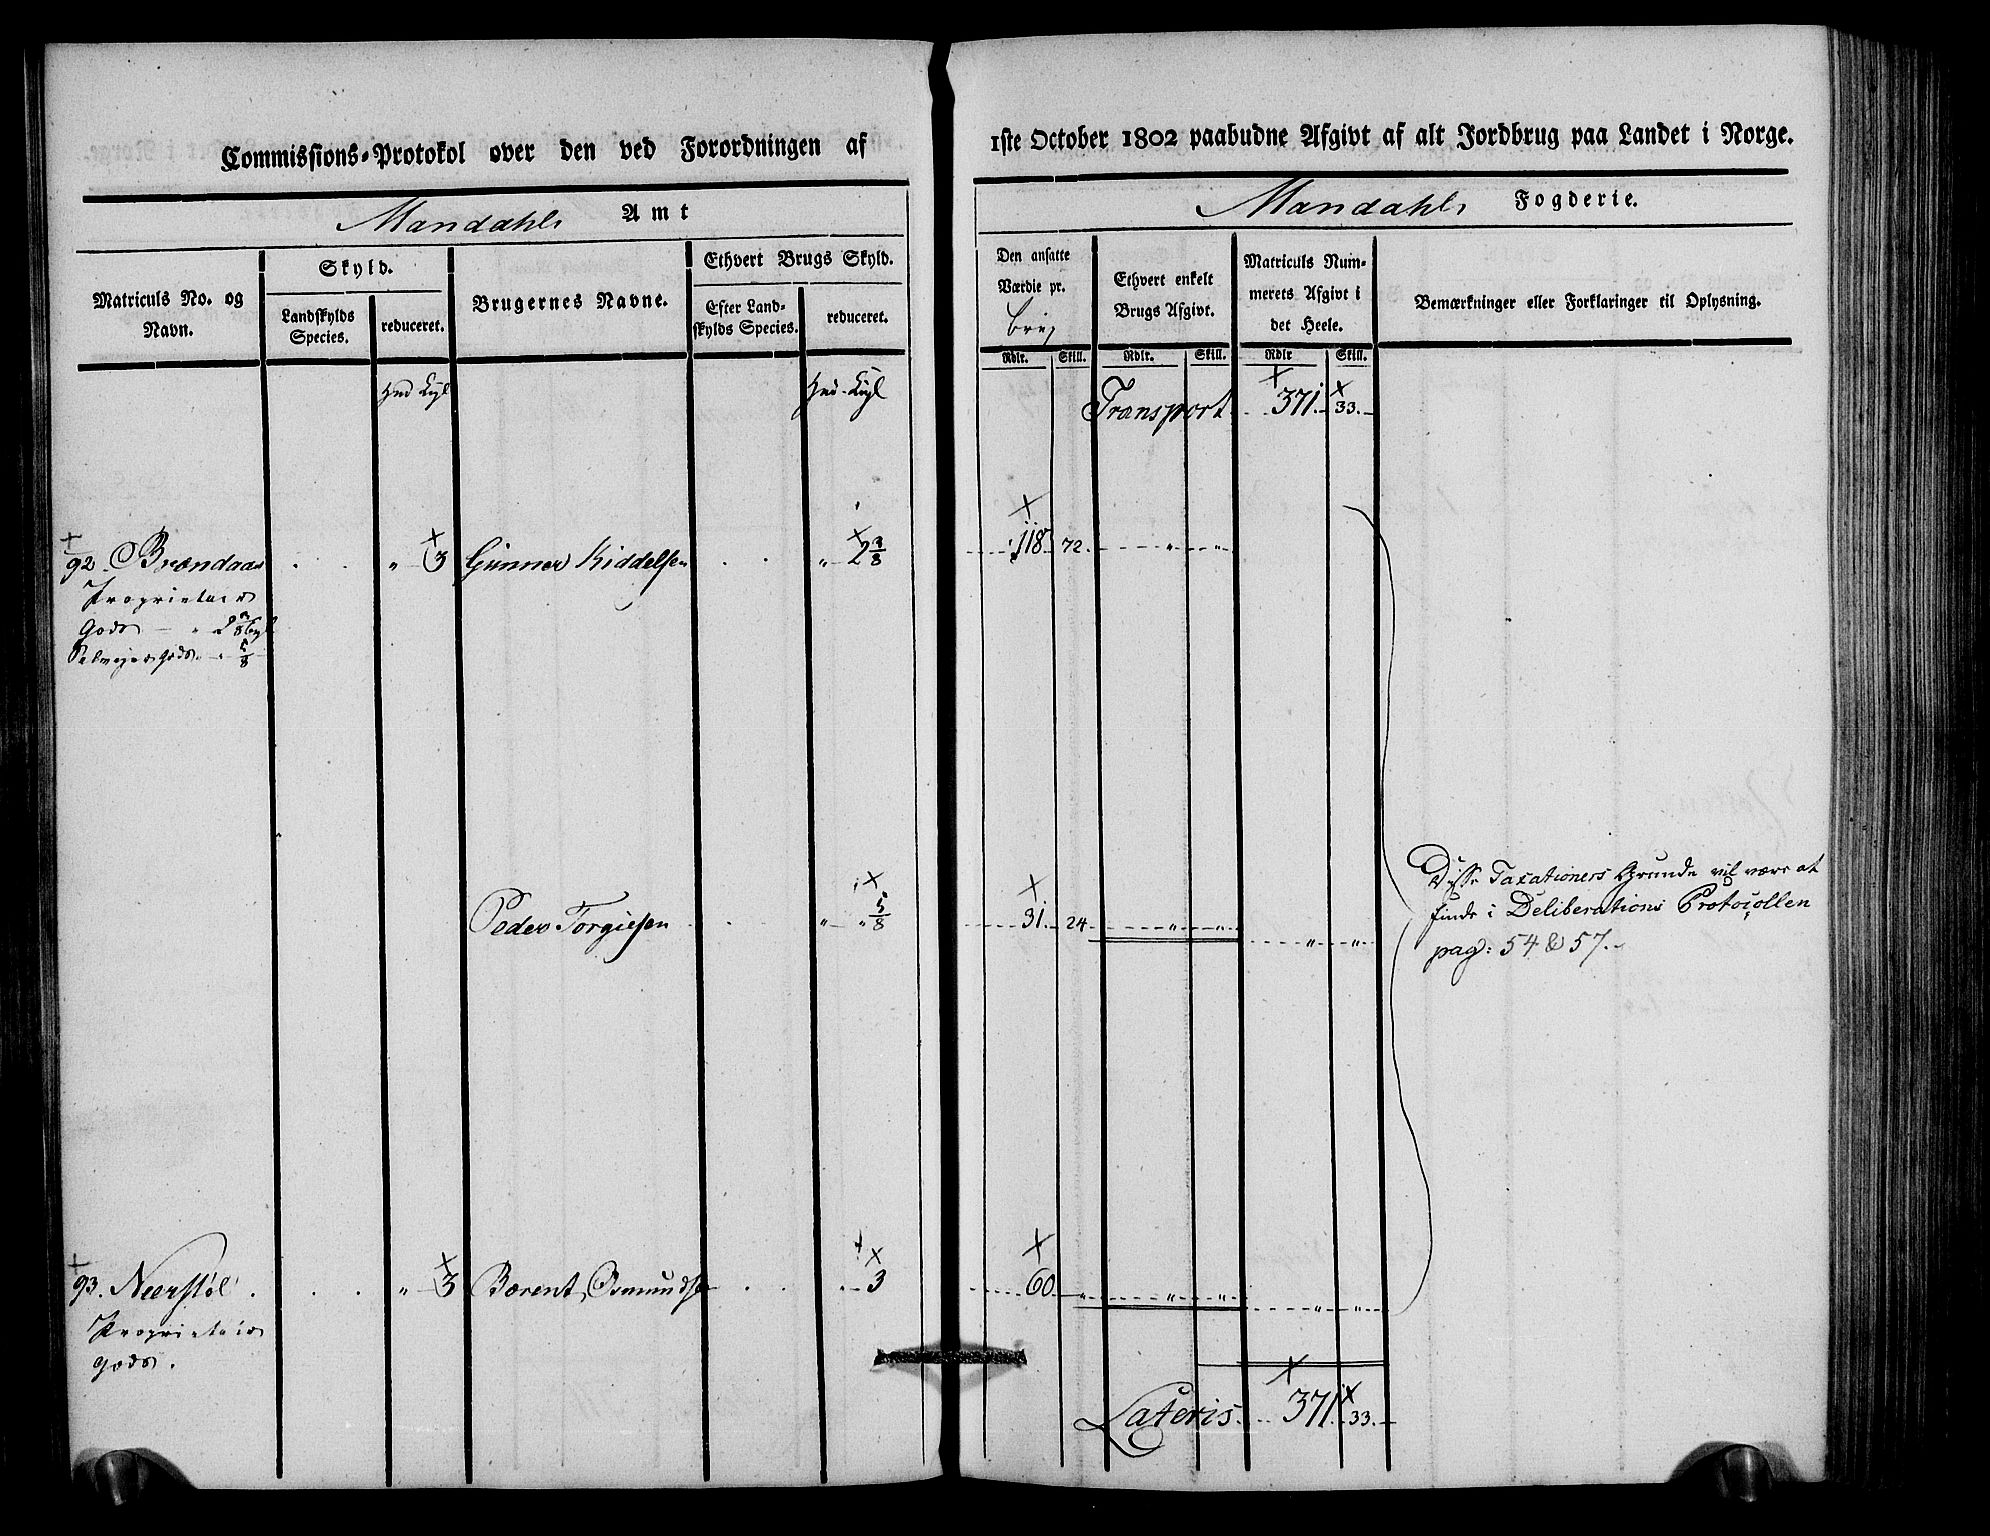 Commissions-Protokol over den ved Forordningen af
Mandahls Amt
Matriculs No. og Navn.
Skyld.
Landskylds Species.
reduceret.
Brugernes Navne.
Ethvert Brugs Skyld.
Efter Landskylds Species.
reduceret.
92. Brændaas . . " 3 Gunner Kiddelsen . . " 2 3/8
Proprietair
Gods - " 2 3/8
Selveier Gods " 5/8
Peder Torgiesen . . " " 5/8
93. Neerstöl . . . " 3 Bærent Osmundsen . . " 3
Proprietair
gods.
1ste October 1802 paabudne Afgivt af alt Jordbrug paa Landet i Norge.
Mandahls Fogderie.
Den ansatte Værdie pr.
brug
Ethvert enkelt Brugs Afgivt.
Matriculs Nummerets Afgivt i det Heele.
Bemærkninger eller Forklaringer til Oplysning.
Rdlr. Skill. Rdlr. Skill. Rdlr Skill.
Transport 371. 33.
118. 72. " "
Disse Taxationers Grunde vil være at
finde i Deliberations Protocollen
pag: 54 & 57.
31. 24 " " " "
60. " " " " "
Lateris. 371. 33.